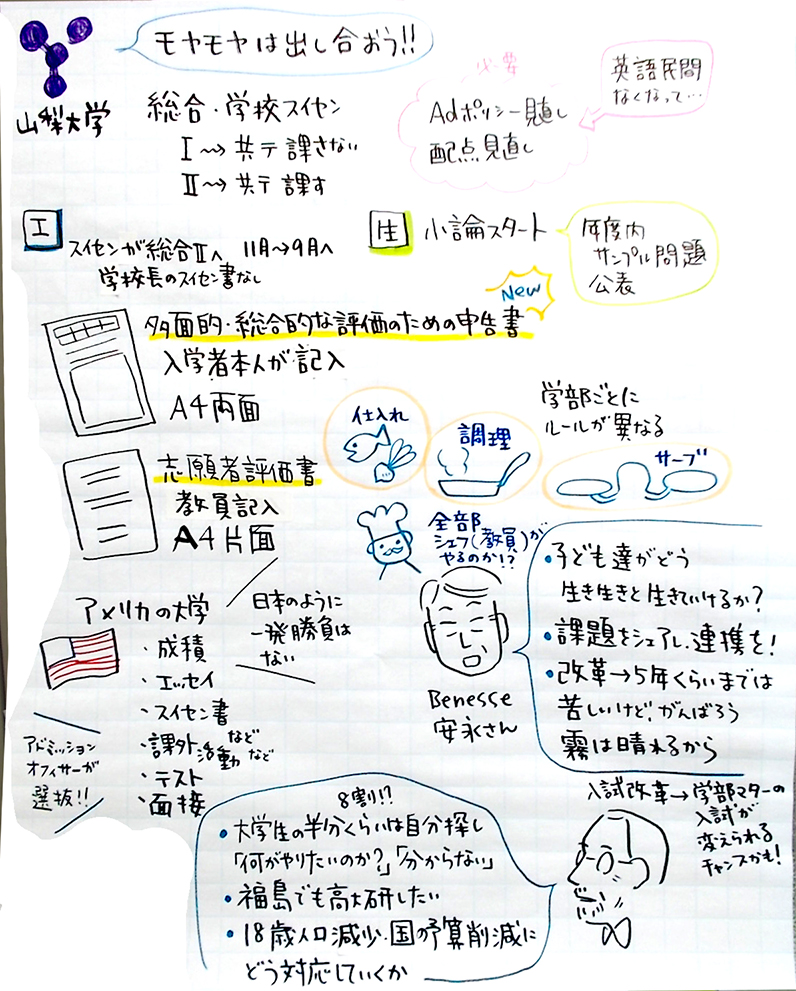 モヤモヤは出し合おう!!
山梨大学
総合・学校スイセン
Ⅰ〜〜> 共テ 課さない
Ⅱ〜〜> 共テ 課す
必要
Adポリシー見直し
配点見直し
英語民間
なくなって…
工
スイセンが総合Ⅱへ 11月→9月へ
学校長のスイセン書なし
生
小論スタート
年度内
サンプル問題
公表
New
多面的・総合的な評価のための申告書
入学者本人が記入
A4両面
志願者評価書
教員記入
A4片面
仕入れ
調理
学部ごとに
ルールが異なる
サーブ
全部
シェフ(教員)が
やるのか!?
アメリカの大学
・成績
・エッセイ
・スイセン書
・課外活動などなど
・テスト
・面接
日本のように
一発勝負は
ない
アドミッション
オフィサーが
選抜!!
Benesse
安永さん
・子ども達がどう
生き生きと生きていけるか?
・課題をシェアし、連携を!
・改革→5年くらいまでは
苦しいけど、がんばろう
霧は晴れるから
入試改革→学部マターの
入試が
変えられる
チャンスかも!
8割!?
・大学生の半分くらいは自分探し
「何がやりたいのか?」「分からない」
・福島でも高大研したい
・18歳人口減少・国の予算削減に
どう対応していくか